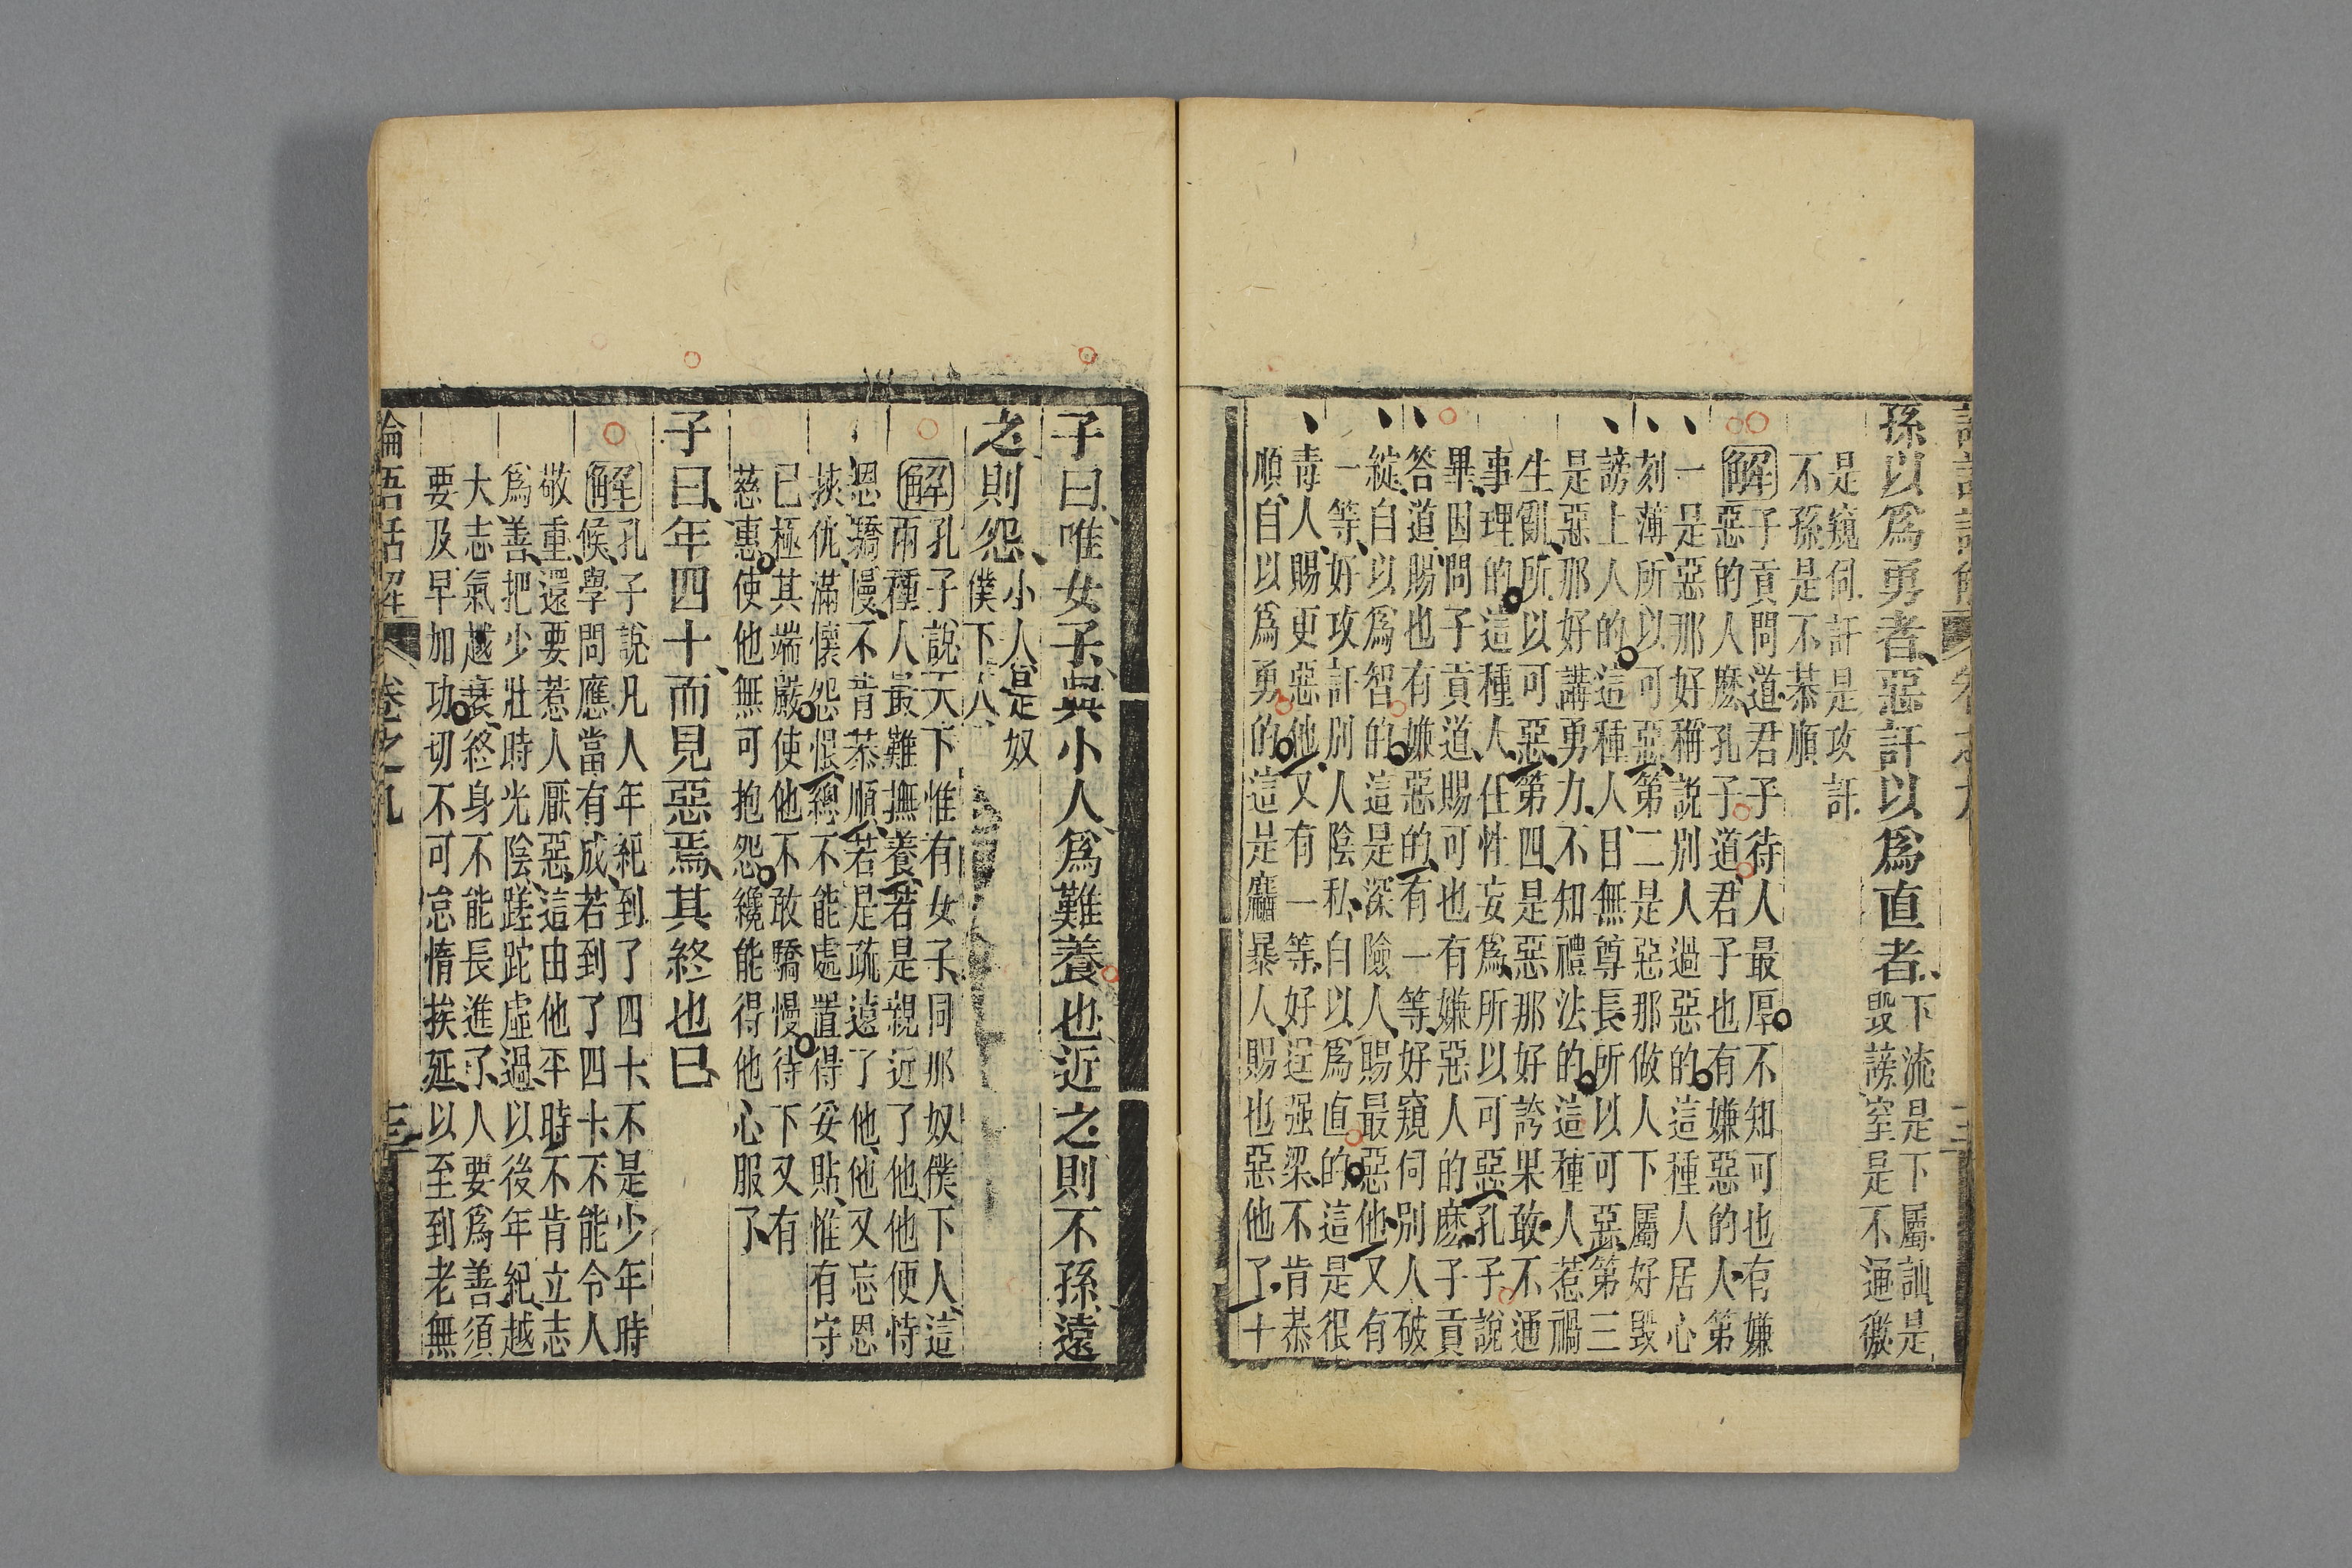 孫以爲勇者惡訐以爲直者下流是下屬訕是
毀謗窒是不通徼
是窺伺訐是攻訐
不孫是不恭順
解子貢問道君子待人最厚不知可也有嫌
惡的人麽孔子道君子也有嫌惡的人第
一是惡那好稱說別人過惡的這種人居心
刻薄所以可惡第二是惡那做人下屬好毀
謗上人的這種人目無尊長所以可惡第三
是惡那好講勇力不知禮法的這種人惹禍
生亂所以可惡第四是惡那好誇果敢不通
事理的這種人任性妄爲所以可惡孔子說
畢因問子貢道賜可也有嫌惡人的麽子貢
答道賜也有嫌惡的有一等好窺伺別人破
綻自以爲智的這是深險人賜最惡他又有
一等好攻訐別人陰私自以爲直的這是很
毒人賜更惡他又有一等好逞强梁不肯恭
順自以爲勇的這是麤暴人賜也惡他了十
子曰唯女子與小人爲難養也近之則不孫遠
之則怨小人是奴
僕下人
解孔子說天下惟有女子同那奴僕下人這
兩種人最難撫養若是親近了他他便恃
恩驕慢不肯恭順若是疏遠了他他又忘恩
挾仇滿懷怨恨總不能處置得妥貼惟有守
已極其端嚴使他不敢驕慢待下又有
慈惠使他無可抱怨纔能得他心服了
子曰年四十而見惡焉其終也已
解孔子說凡人年紀到了四十不是少年時
候學問應當有成若到了四十不能令人
敬重還要惹人厭惡這由他平時不肯立志
爲善把少壯時光陰蹉跎虛過以後年紀越
大志氣越衰終身不能長進了人要爲善須
要及早加功切不可怠惰挨延以至到老無
論語話解 卷之九 三